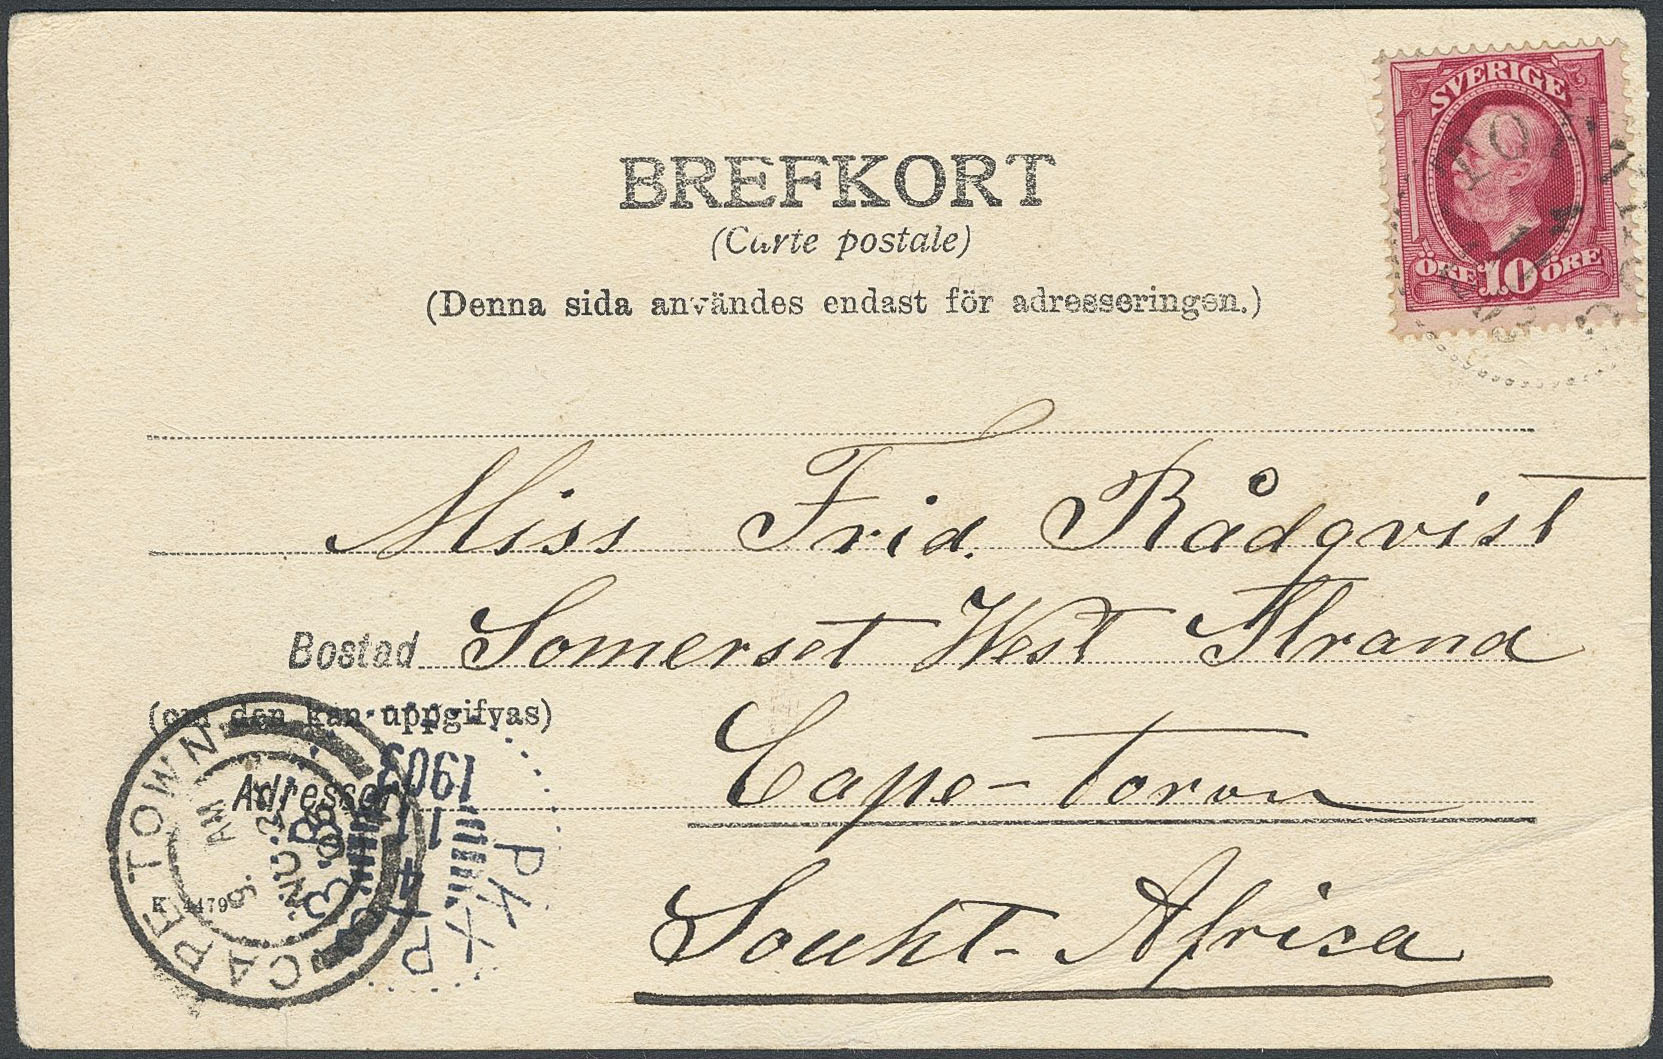 SVERIGE
ÖRE 10 ÖRE
BREFKORT
(Carte postale)
(Denna sida användes endast för adresseringen.)
Miss Frid. Rådqvist
Bostad Somerset West Strand
(om den kan uppgifvas)
Cape-town
Adresseort
South-Africa
CAPE TOWN
AM
1903
11
4
PKXP